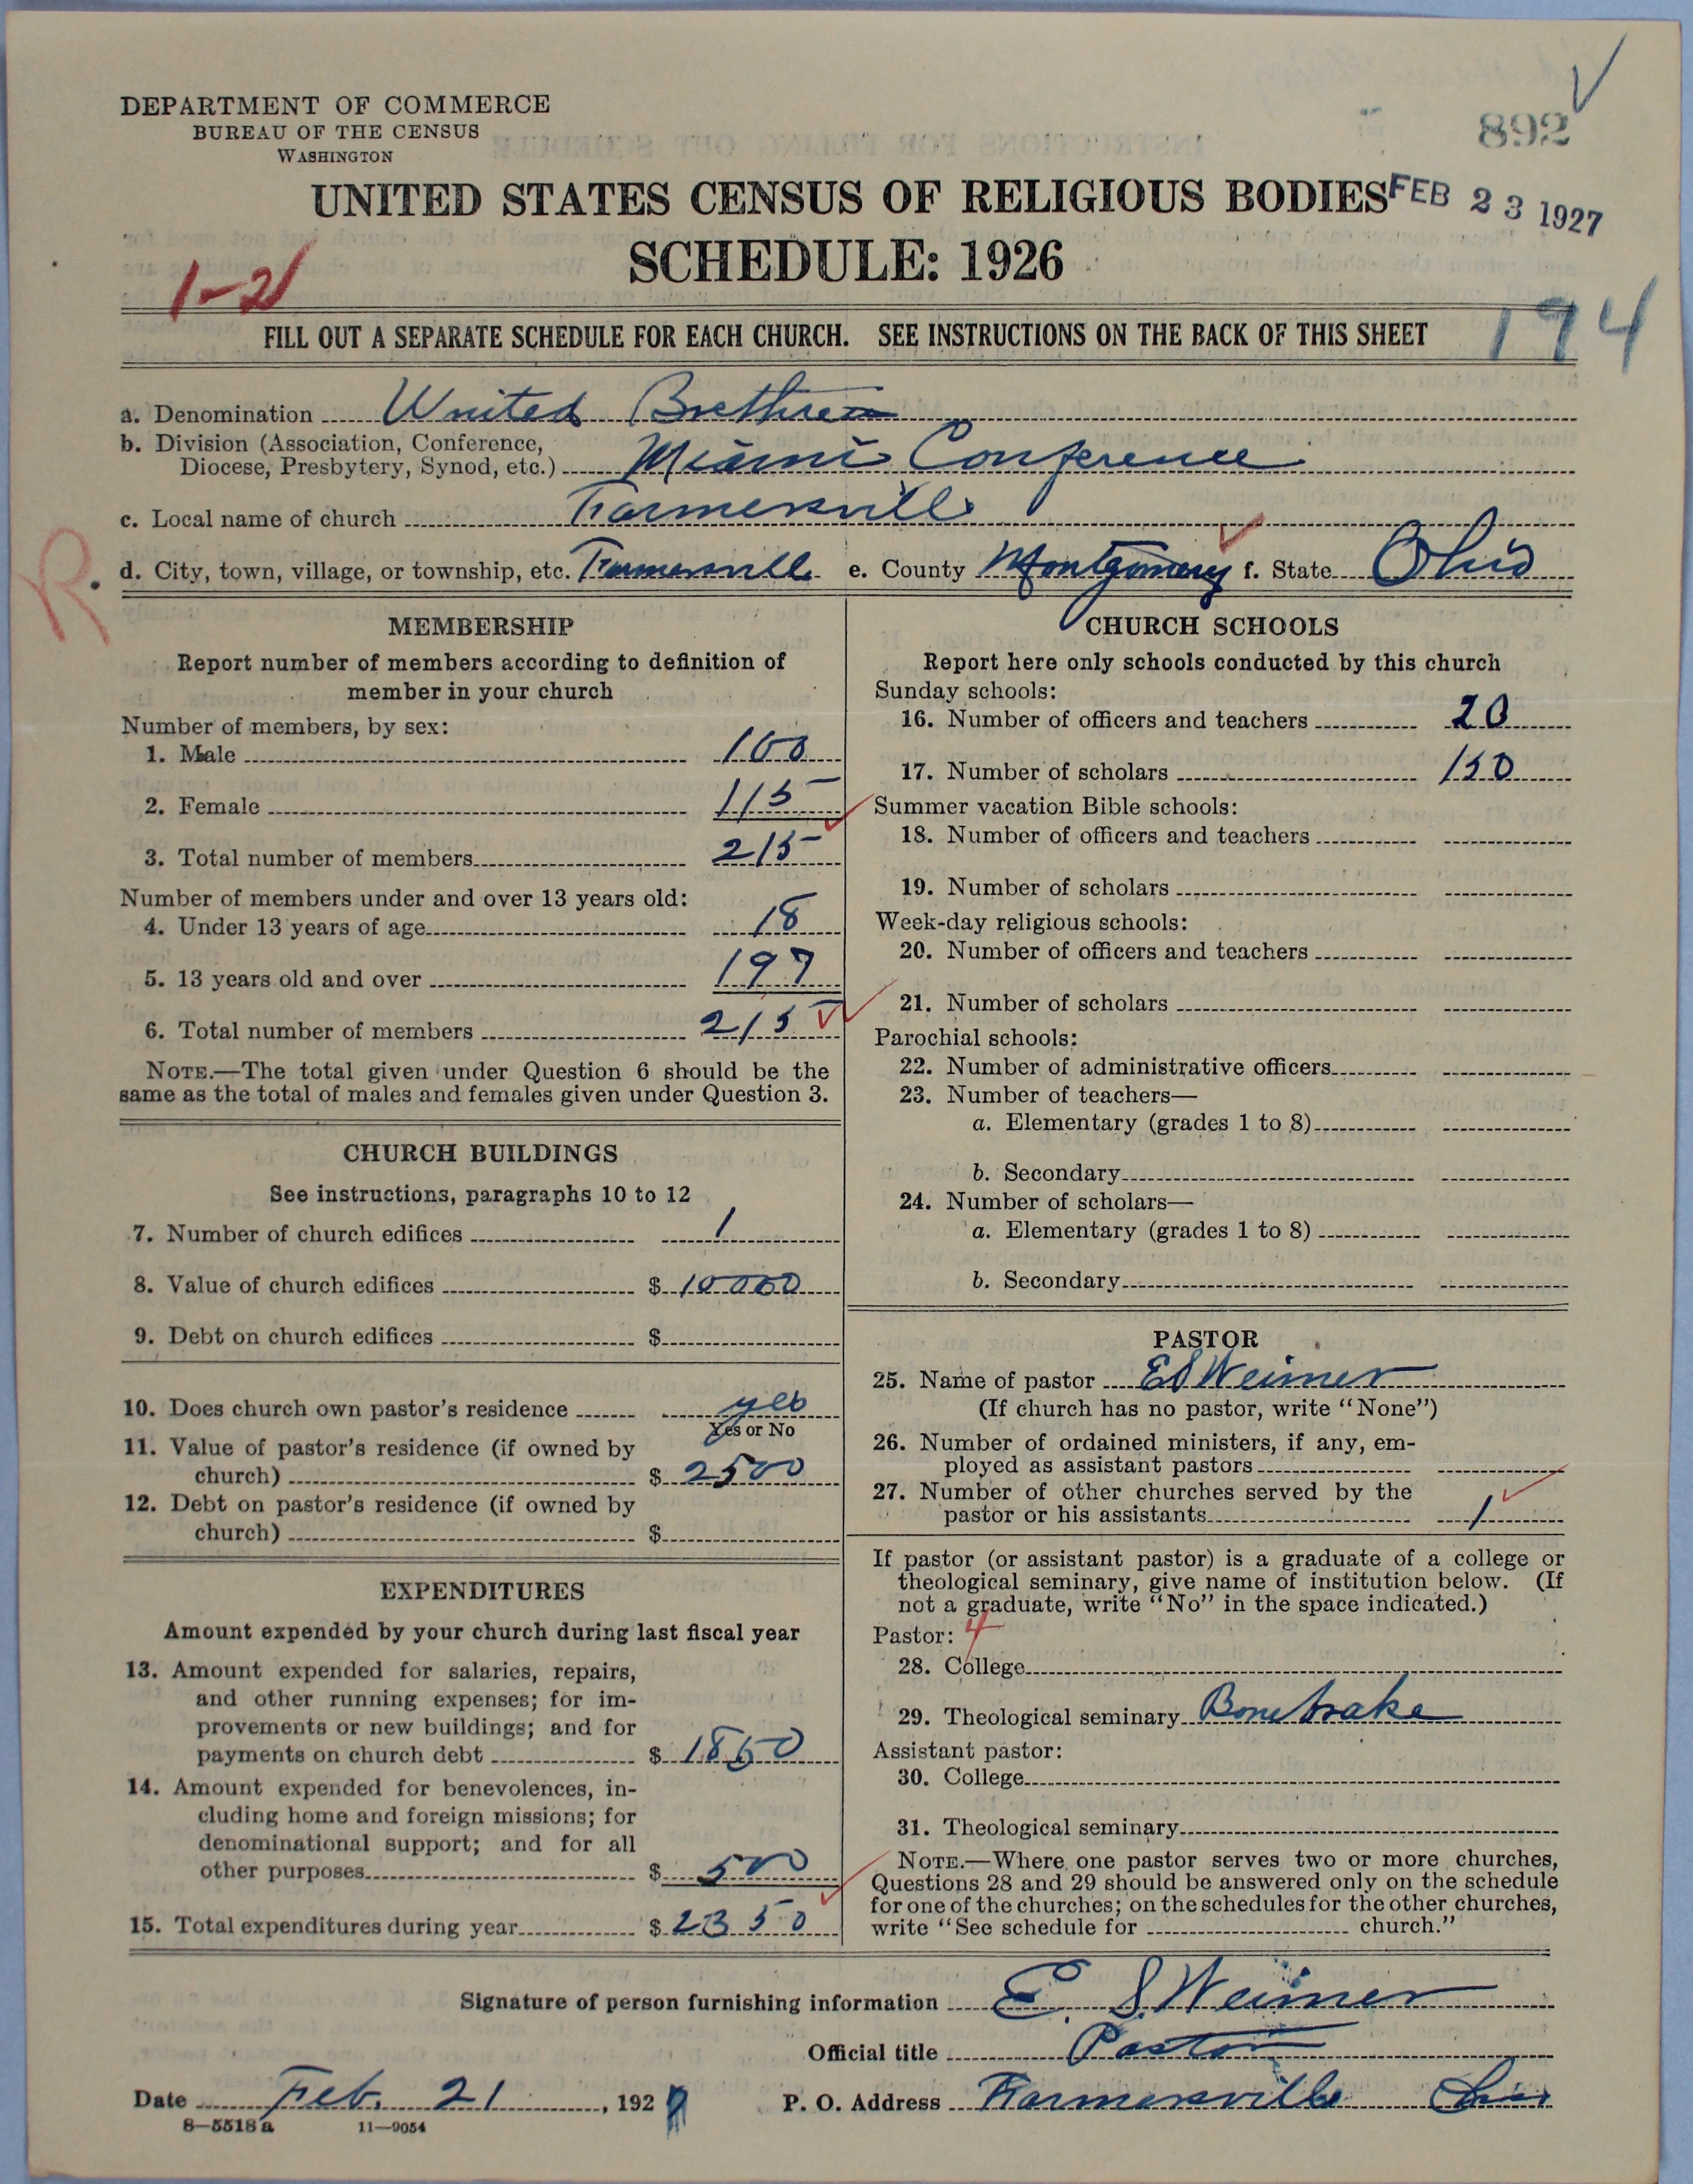 DEPARTMENT OF COMMERCE
BUREAU OF THE CENSUS
WASHINGTON
892
UNITED STATES CENSUS OF RELIGIOUS BODIES
FEB 23 1927
SCHEDULE: 1926
1-2
FILL OUT A SEPARATE SCHEDULE FOR EACH CHURCH. SEE INSTRUCTIONS ON THE BACK OF THIS SHEET
194
a. Denomination United Brethren
b. Division (Association, Conference,
Diocese, Presbytery, Synod, etc.) Miami Conference
c. Local name of church Farmersville
R.
d. City, town, village, or township, etc. Farmersville e. County Montgomery f. State Ohio
MEMBERSHIP
Report number of members according to definition of
member in your church
Number of members, by sex:
1. Male 100
2. Female 115
3. Total number of members 215
Number of members under and over 13 years old:
4. Under 13 years of age 18
5. 13 years old and over 197
6. Total number of members 215
NOTE.—The total given under Question 6 should be the
same as the total of males and females given under Question 3.
CHURCH BUILDINGS
See instructions, paragraphs 10 to 12
7. Number of church edifices 1
8. Value of church edifices $ 10000
9. Debt on church edifices $
10. Does church own pastor's residence yes
Yes or No
11. Value of pastor's residence (if owned by
church) $ 2500
12. Debt on pastor's residence (if owned by
church) $
EXPENDITURES
Amount expended by your church during last fiscal year
13. Amount expended for salaries, repairs,
and other running expenses; for im-
provements or new buildings; and for
payments on church debt $ 1850
14. Amount expended for benevolences, in-
cluding home and foreign missions; for
denominational support; and for all
other purposes $ 500
15. Total expenditures during year $ 2350
CHURCH SCHOOLS
Report here only schools conducted by this church
Sunday schools:
16. Number of officers and teachers 20
17. Number of scholars 150
Summer vacation Bible schools:
18. Number of officers and teachers
19. Number of scholars
Week-day religious schools:
20. Number of officers and teachers
21. Number of scholars
Parochial schools:
22. Number of administrative officers
23. Number of teachers—
a. Elementary (grades 1 to 8)
b. Secondary
24. Number of scholars—
a. Elementary (grades 1 to 8)
b. Secondary
PASTOR
25. Name of pastor E S Weimer
(If church has no pastor, write "None")
26. Number of ordained ministers, if any, em-
ployed as assistant pastors
27. Number of other churches served by the
pastor or his assistants 1
If pastor (or assistant pastor) is a graduate of a college or
theological seminary, give name of institution below. (If
not a graduate, write "No" in the space indicated.)
Pastor: 4
28. College
29. Theological seminary Bonebrake
Assistant pastor:
30. College
31. Theological seminary
NOTE.—Where one pastor serves two or more churches,
Questions 28 and 29 should be answered only on the schedule
for one of the churches; on the schedules for the other churches,
write "See schedule for church."
Signature of person furnishing information E. S. Weimer
Official title Pastor
Date Feb. 21, 1927 P. O. Address Farmersville Ohio
8—5518a 11—9054